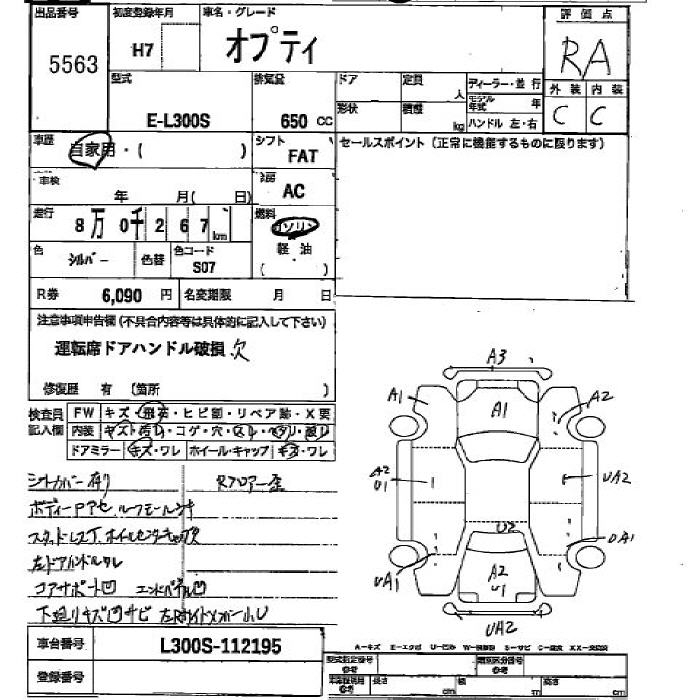 出品番号 初度登録年月 車名・グレード 評価点
5563 H7 オプティ RA
型式 排気量 ドア 定員 人 ディーラー・並行 外装 内装
E-L300S 650 CC 形状 積載 kg モデル年式 年 C C
ハンドル 左・右
車歴 自家用・( ) シフト FAT セールスポイント(正常に機能するものに限ります)
車検 年 月( 日) 冷房 AC
走行 8万0千267km 燃料 ガソリン
軽・油
( )
色 シルバー 色替 色コード S07
R券 6,090 円 名変期限 月 日
注意事項申告欄(不具合内容等は具体的に記入して下さい)
運転席ドアハンドル破損 欠
修復歴 有 (箇所 )
検査員記入欄 FW キズ・飛石・ヒビ割・リペア跡・X要
内装 キズ・汚れ・コゲ・穴・スレ・ヘタリ・破レ
ドアミラー キズ・ワレ ホイール・キャップ キズ・ワレ
シートカバー有り Rフロアー歪
ボディーPアセ
左ドアハンドルワレ
コアサポート凹 エンドパネル凹
下廻りキズ凹サビ
A3
A1 A1 A2
A2 U1 UA2
U2
UA1 A2 U1 UA1
UA2
A-キズ E-エクボ U-凹み W-補修跡 S-サビ C-腐食 XX-交換済
車台番号 L300S-112195
登録番号
型式指定番号 参考 類別区分番号 参考
参考 長さ cm 幅 cm 高さ cm